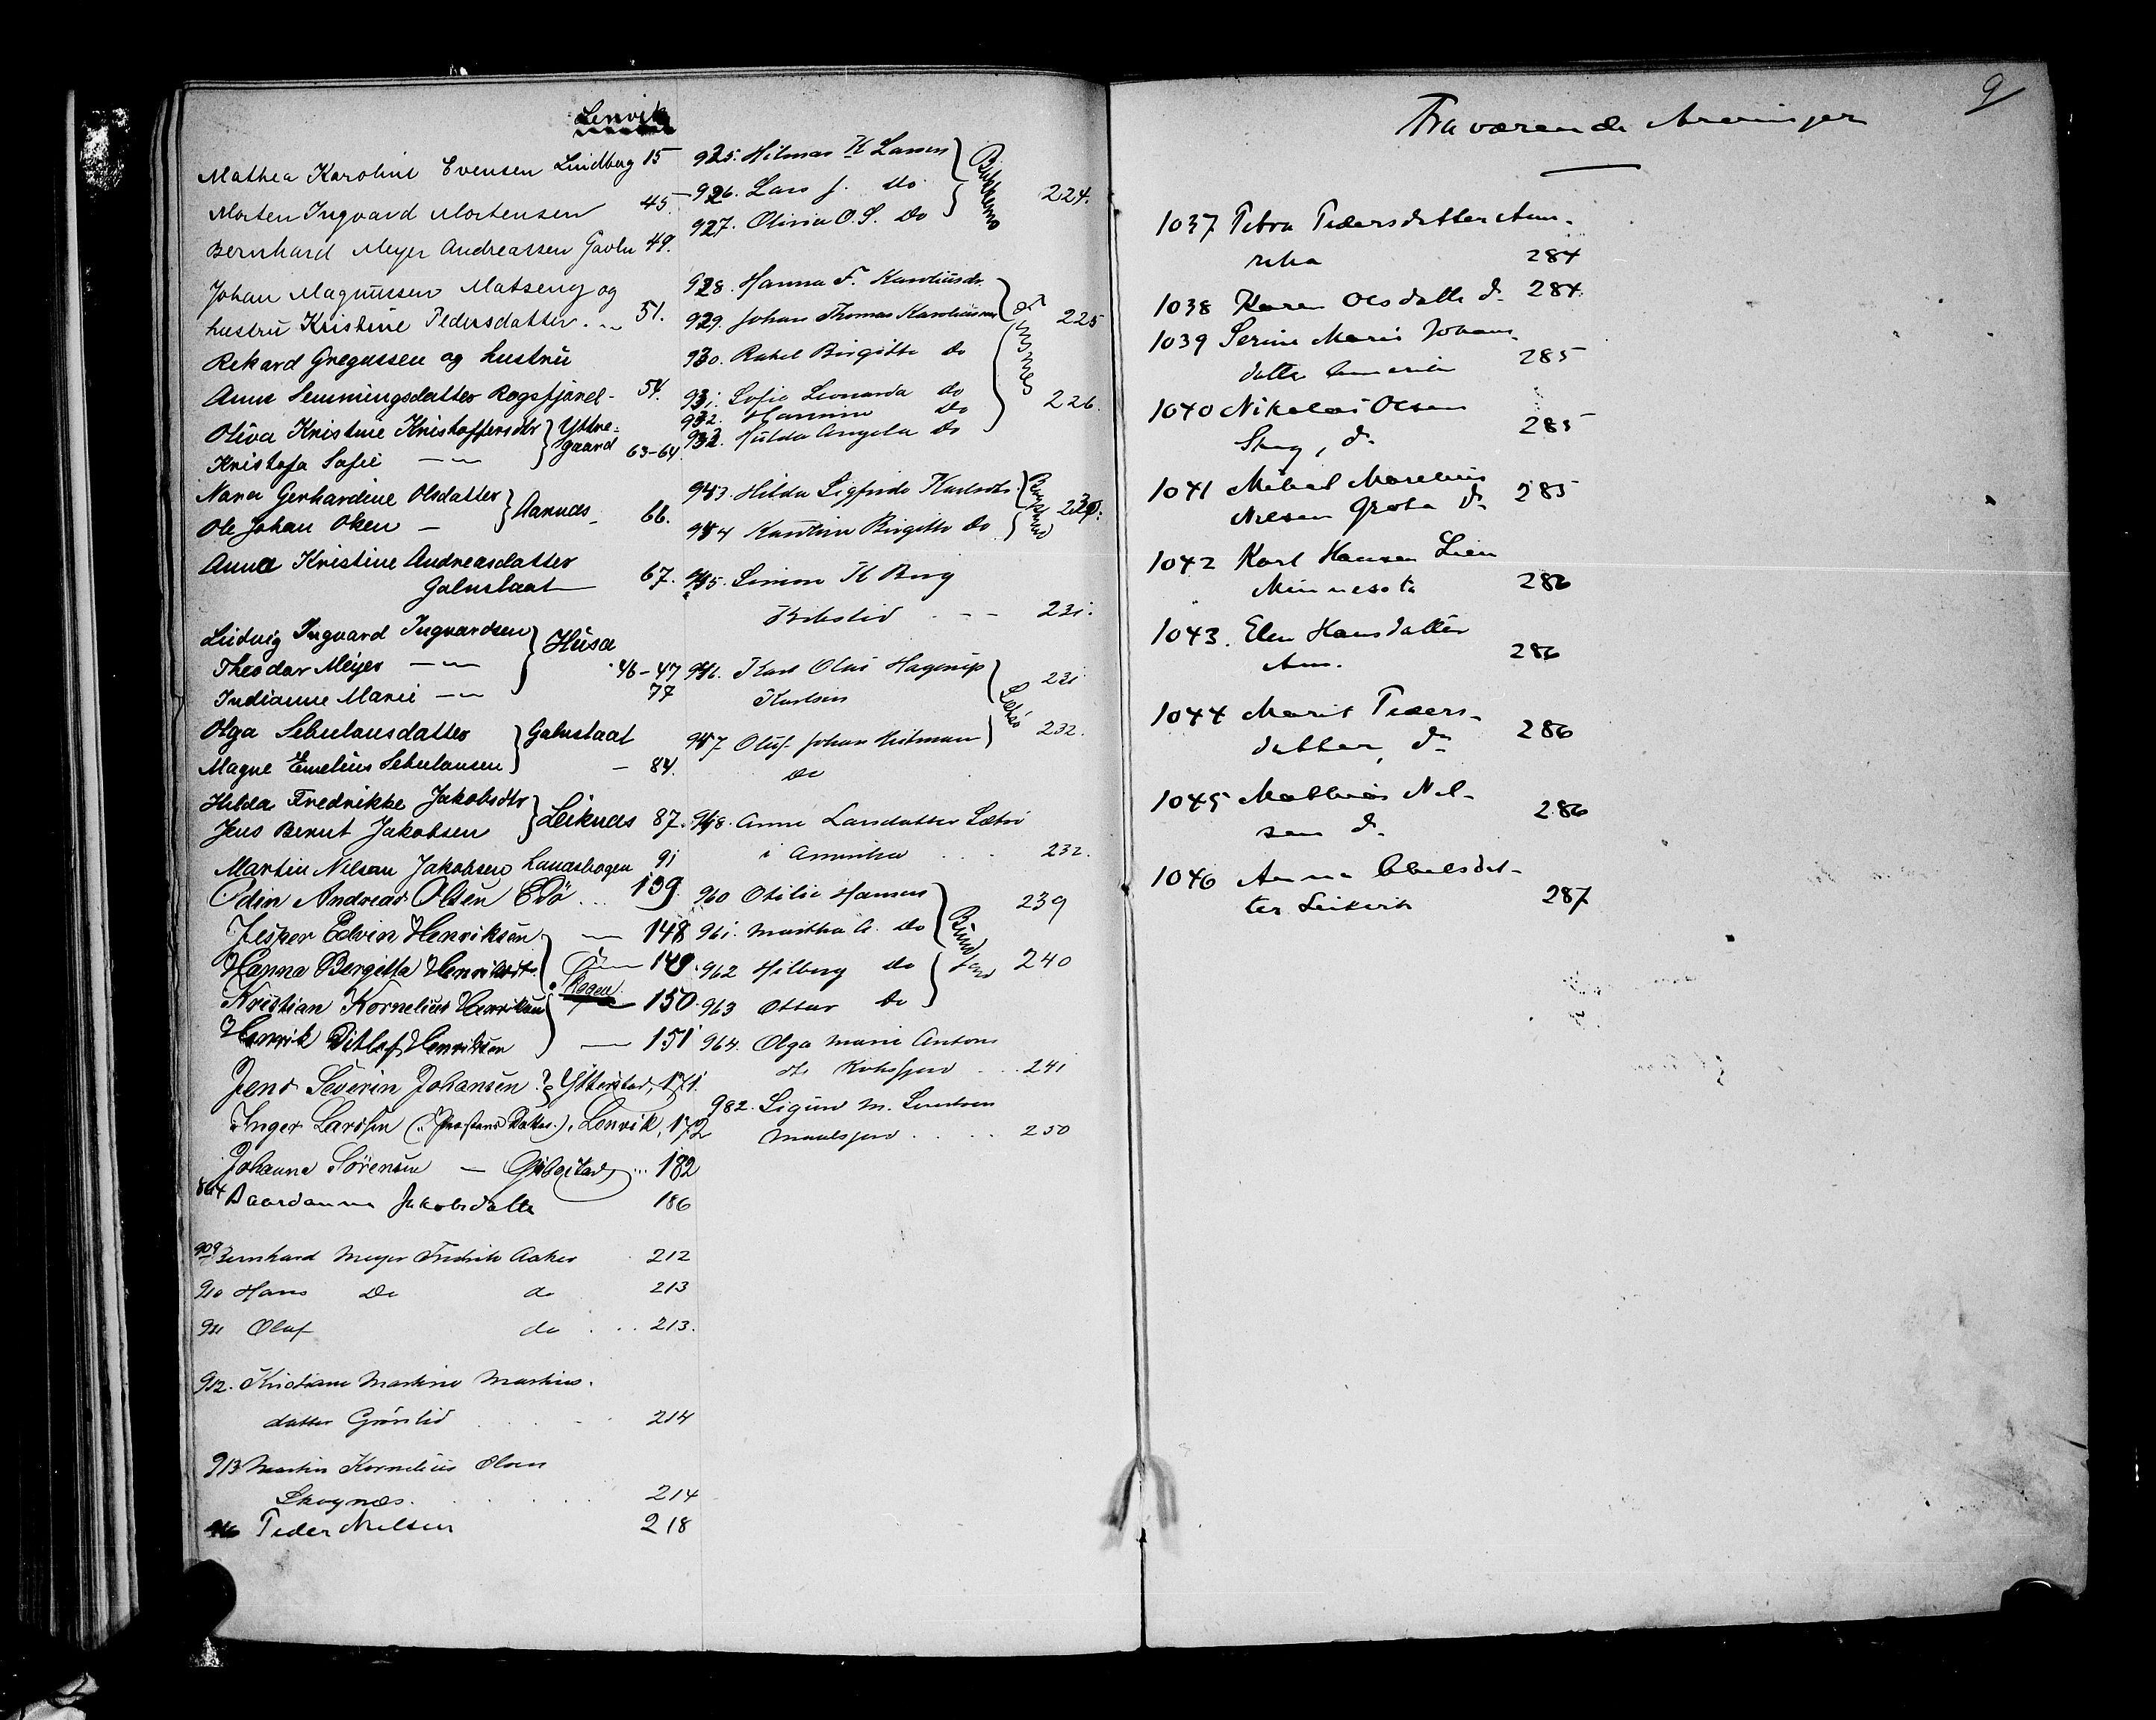 Lenvik
Mathea Karoline Evensen Lindberg 15
Morten Ingvard Mortensen 45.
Bernhard Meyer Andreassen Gavlu 49.
Johan Magnussen Matseng og
hustru Kristine Pedersdatter. 51.
Rikard Gregussen og hustru
Anne Hemmingsdatter Rogsfjorel- 54.
Oliva Kristine Kristoffersdtr } Yttre-
Kristofa Sofie — " — } gaard 63-64
Nana Gerhardine Olsdatter } Aanæs
Ole Johan Olsen — 66.
Anna Kristine Andreasdatter
Galnslaat 67.
Ludvig Ingvard Ingvardsen } Husa
Theodor Meyer — " — 46-47
Indianne Marie — " — 77
Olga Sebulonsdatter } Galnslaat
Magne Emelius Sebulonsen } — 84.
Hilda Fredrikke Jakobsdtr } Leiknæs 87.
Jens Bernt Jakobsen
Martin Nilsen Jakobsen Laugsbogen 91
Odin Andreas Olsen Edø ... 139.
Jesper Edvin Henriksen — 148
Hanna Bergitta Henriksdt. — 149
Kristian Kornelius Henriksen Skogen 150.
Henrik Ditlef Henriksen — 151
Jens Severin Johansen. ? Ytterstad, 171.
Inger Larssen ( Datter.), Lenvik, 172
Johanna Sørensen — Gibostad, ... 182
864 Baardanna Jakobsdatter 186
909 Bernhard Meyer Fredrik Aaker 212
910 Hans Do do 213
911 Oluf do . . . 213.
912. Kristiane Martine Martins.
datter Grønlid . . . - . 214
913 Martin Kornelius Olsen
Skognæs. . . . . . 214
916 Peder Nilsen 218
925. Hilmar K Larsen
926. Lars J. do 224.
927. Olivia O. S. Do
928. Hanna F. Karoliusdr.
929. Johan Thomas Karoliussen 225
930. Rakel Birgitte do
Finsnes
931. Sofie Leonarda do 226.
932. Hansine Do
933. Hulda Angela Do
943. Hilda Sigfride Karlsdtr. 230.
944 Karoline Birgitte do
945. Simon K Berg
231.
946. Karl Olai Hagerup 231
Karlsen
Sætri
947 Oluf Johan Hilman 232.
do
948. Anne Larsdatter Sætri
i Amerika . . . 232.
960 Otilie Hansen 239
961. Martha A. do
962 Hilberg do 240
963 Ottar do
964. Olga Marie Antons
dtr. . . . 241
982. Sigurd M. Sivertsen
Maalsfjord . . . . 250
9
Fraværende Arvinger
1037 Petra Pedersdatter Ame-
rika 284
1038 Karen Olsdatter do 284
1039 Serine Marie Johans-
datter Amerika 285
1040 Nikolai Olsen
Skog, do 285
1041 Mikal Marelius
Nilsen Grota do 285
1042 Karl Hansen Lien
Minnesota 286
1043. Elen Hansdatter
Am. 286
1044 Marit Peders-
datter, do 286
1045 Mathias Nil-
sen do 286
1046 Anna Abelsdat-
ter Leikvik 287